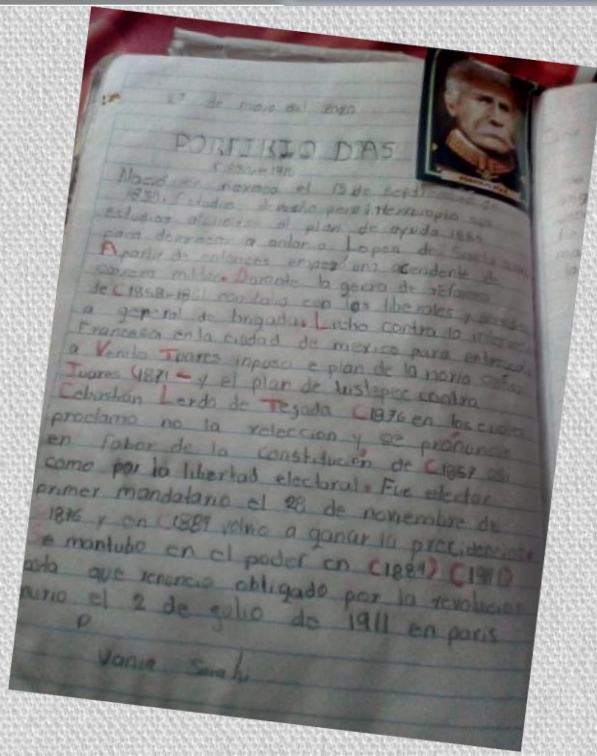 de mayo del 2020
PORFIRIO DIAS
Nacio en oaxaca el 15 de
1830. Estudio derecho pero interrumpio sus
estudios al plan de ayuda
para derrocar a antonio Lopes de Santa
Apartir de entonces empezo una acendente de
carrera militar. Durante la gerra de reforma
de (1858-1861 con los liberales y
a general de brigada. Lucho contra la
Francesa en la ciudad de mexico para
a Venito Juares inpuso e plan de la noria
Juares y el plan de tustepec contra
Cebastian Lerdo de Tegada (1876 en los cuales
proclamo no la releccion y se pronuncio
en fabor de la constitución de (1857 asi
como por la libertad electoral. Fue elector
primer mandatario el 28 de noviembre de
1876 y en volvio a ganar la precidencia
e mantubo en el poder en (1884)
asta que renuncio obligado por la revolucion
murio el 2 de gulio de 1911 en paris
Vania Sarahi